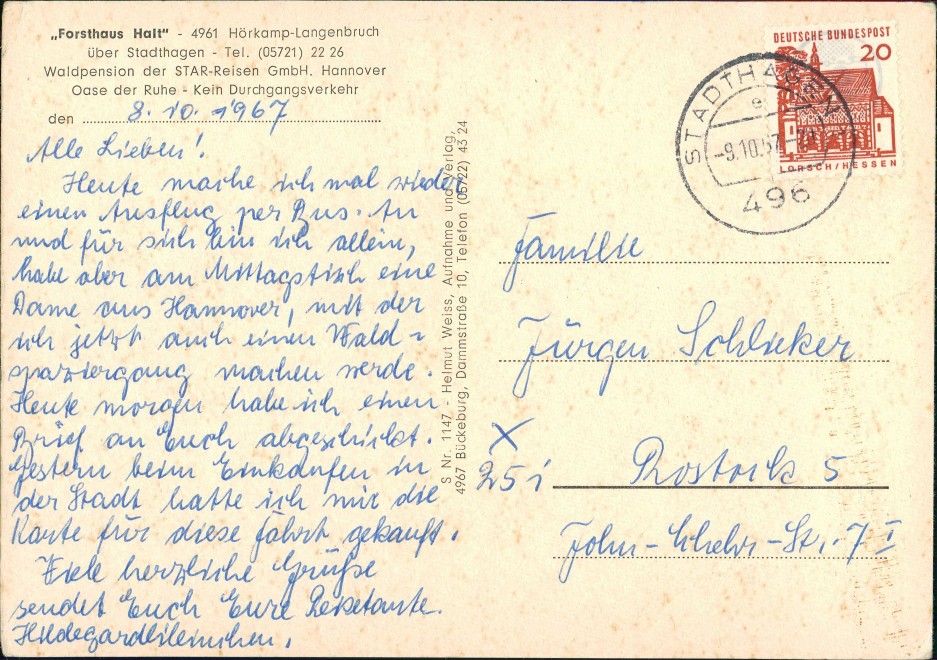 „Forsthaus Halt" - 4961 Hörkamp-Langenbruch
über Stadthagen - Tel. (05721) 22 26
Waldpension der STAR-Reisen GmbH. Hannover
Oase der Ruhe - Kein Durchgangsverkehr
den 8. 10. 1967
Alle Lieben!
Heute mache ich mal wieder
einen Ausflug per Bus. An
und für sich bin ich allein,
habe aber am Mittagstisch eine
Dame aus Hannover, mit der
ich jetzt auch einen Wald=
spaziergang machen werde.
Heute morgen habe ich einen
Brief an Euch abgeschickt.
Gestern beim Einkaufen in
der Stadt hatte ich mir die
Karte für diese Fahrt gekauft.
Viele herzliche Grüße
sendet Euch Eure Reisetante.
S Nr. 1147 - Helmut Weiss, Aufnahme und Verlag,
4967 Bückeburg, Dammstraße 10, Telefon (05722) 43 24
DEUTSCHE BUNDESPOST
20
LORSCH/HESSEN
STADTHAGEN
e
-9.10.67
496
Familie
Jürgen Schlieker
X
25 i
Rostock 5
John-Schehr-Str. 7 I